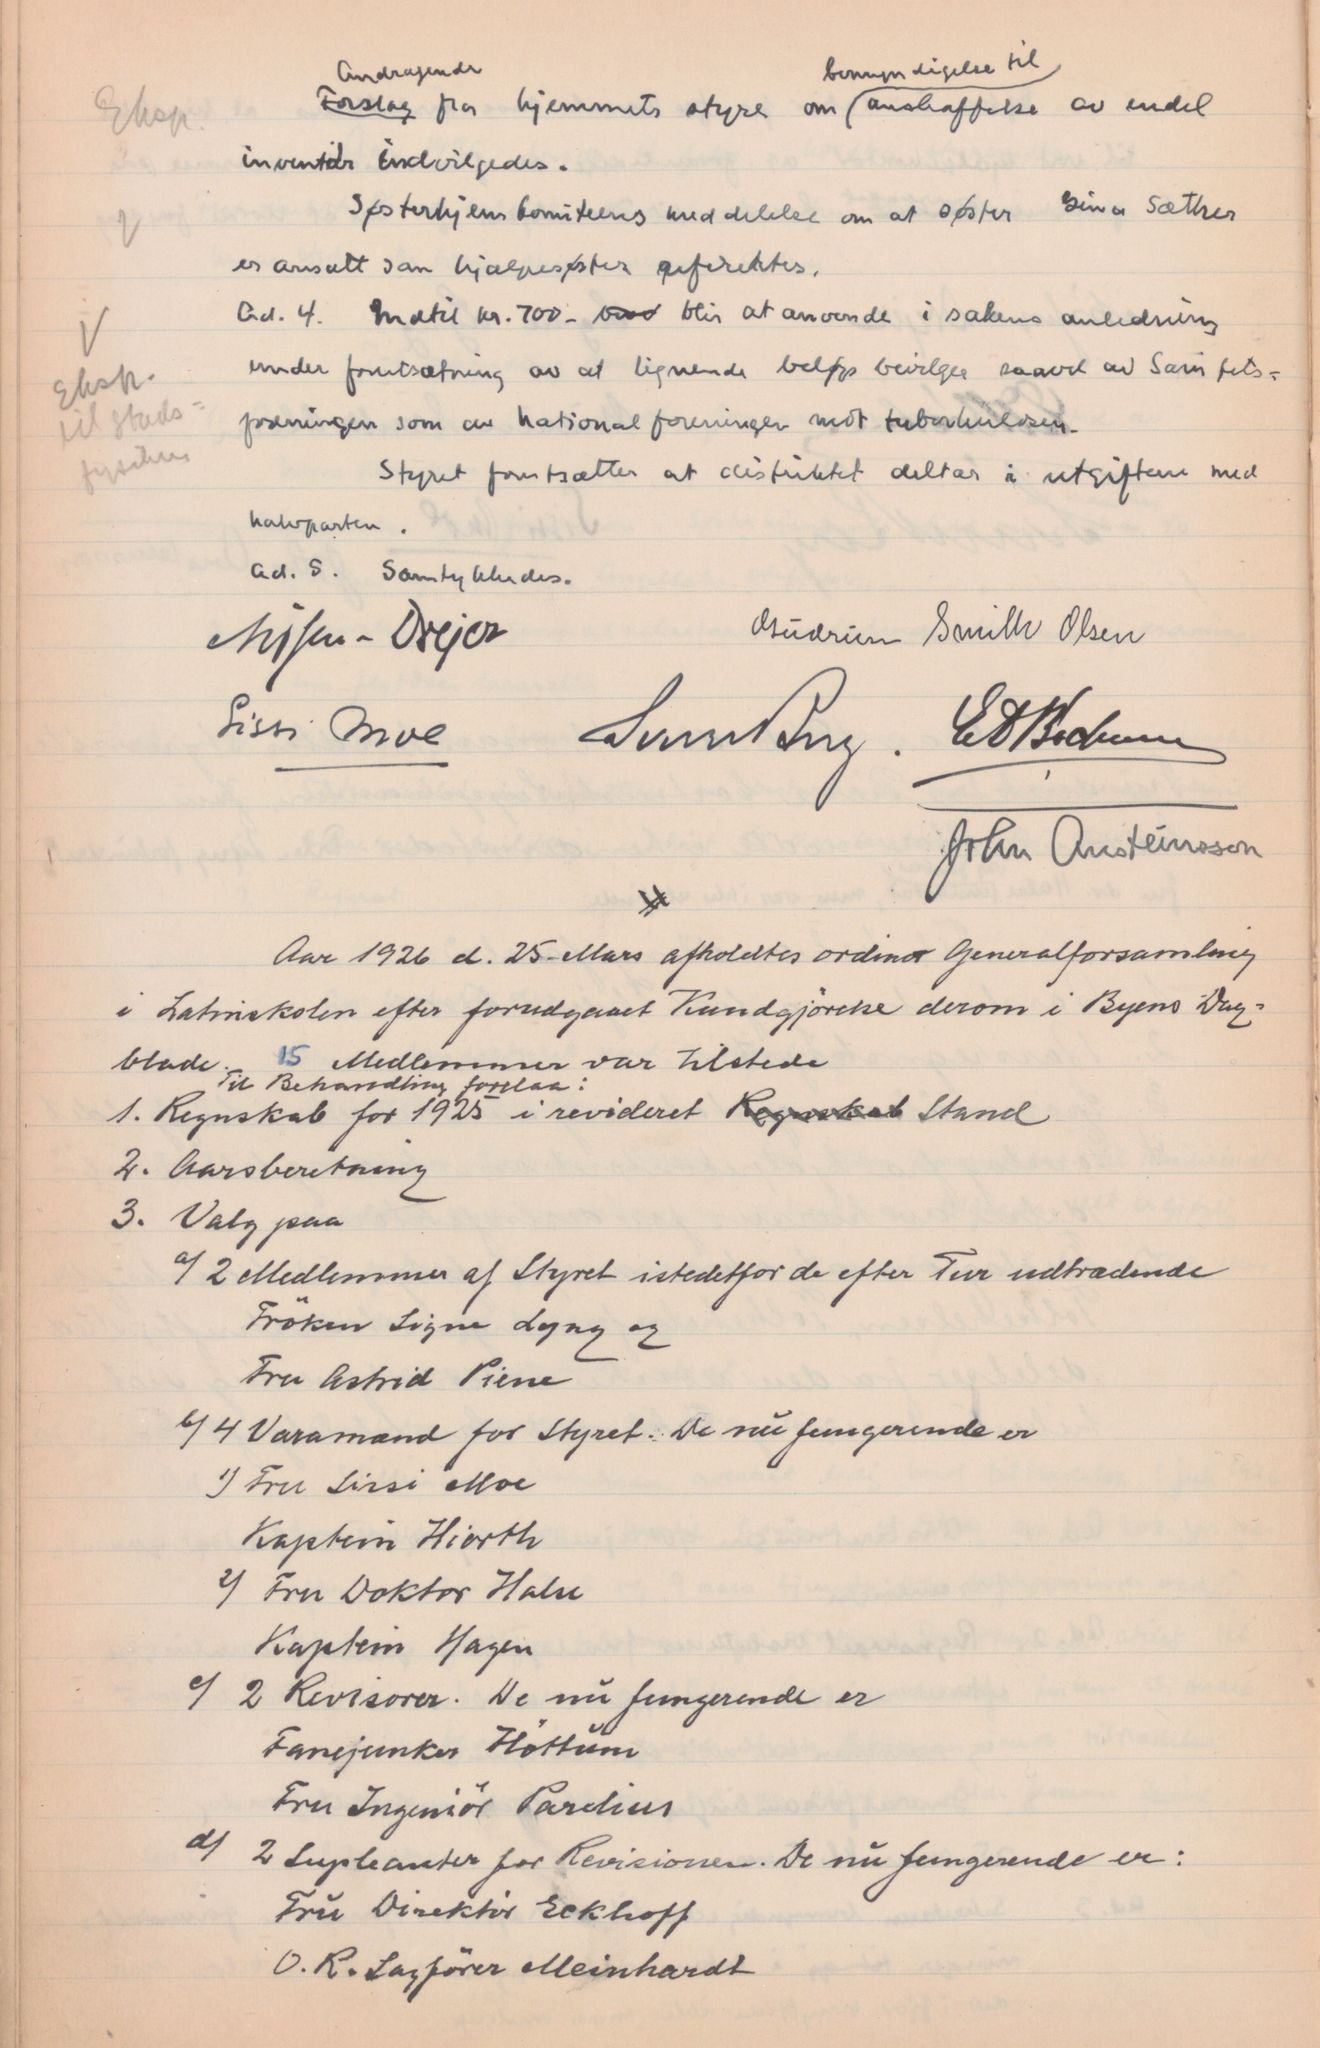 Andragende
benyndigelse til
Eksp.
Forslag fra hjemmets styre om anskaffelse av endel
inventar indvilgedes.
Søsterhjemskomiteens meddelelse om at søster Sina Sæther
er ansatt som hjælpesøster refertes.
Ad. 4. Indtil kr. 700 - blir at anvende i sakens anledning
under forutsætning av at lignende beløp bevilges saavel av Sanitets-
foreningen som av Nationalforeningen mot tuberkulosen.
Eksp.
til stads-
fysikus
Styret forutsætter at distriktet deltar i utgiftene med
halvparten.
Ad. 5. Samtykkedes.
Nissen-Drejer Gudrun Smith Olsen
Sissi Moe
John Austeinsson
Aar 1926 d. 25-Mars afholdtes ordinær Generalforsamling
i Latinskolen efter forudgaaet Kundgjørelse derom i Byens Dag-
blade. 15 Medlemmer var tilstede
Til Behandling forelaa:
1. Regnskab for 1925 i revideret Regnskab Stand
2. Aarsberetning
3. Valg paa
a/ 2 Medlemmer af Styret istedetfor de efter Tur udtrædende
Fröken Signe Lyng og
Fru Astrid Piene
b/ 4 Varamænd for Styret. De nu fungerende er
1) Fru Sissi Moe
Kaptein Hiorth
2) Fru Doktor Halse
Kaptein Hagen
c/ 2 Revisorer. De nu fungerende er
Fanejunker Höttum
Fru Ingeniör Parelius
d/ 2 Supleanter for Revisionen. De nu fungerende er:
Fru Direktör Eckhoff
O. R. Sagförer Meinhardt